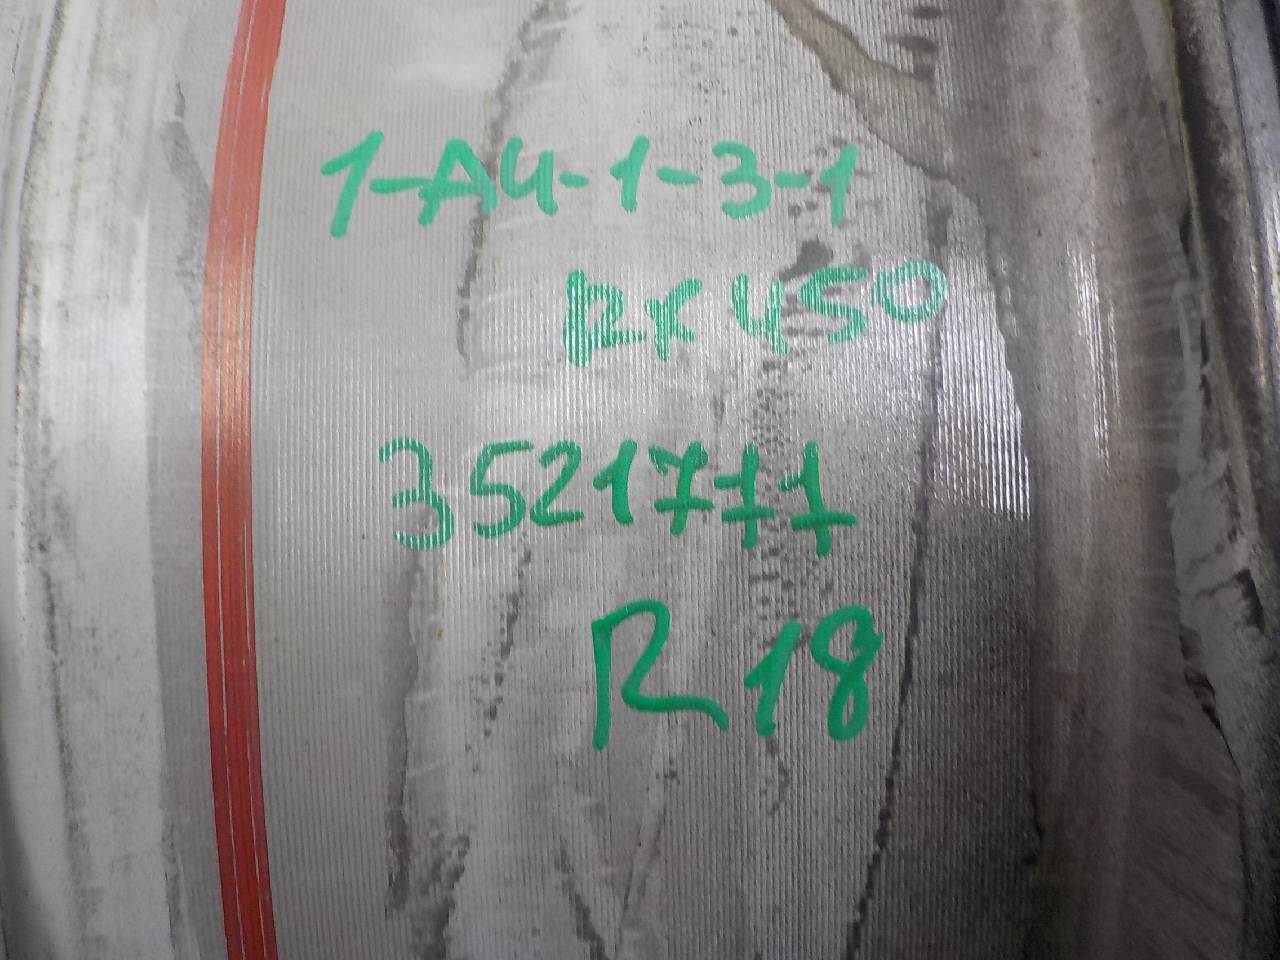 1-A4-1-3-1
RX450
3521711
R18